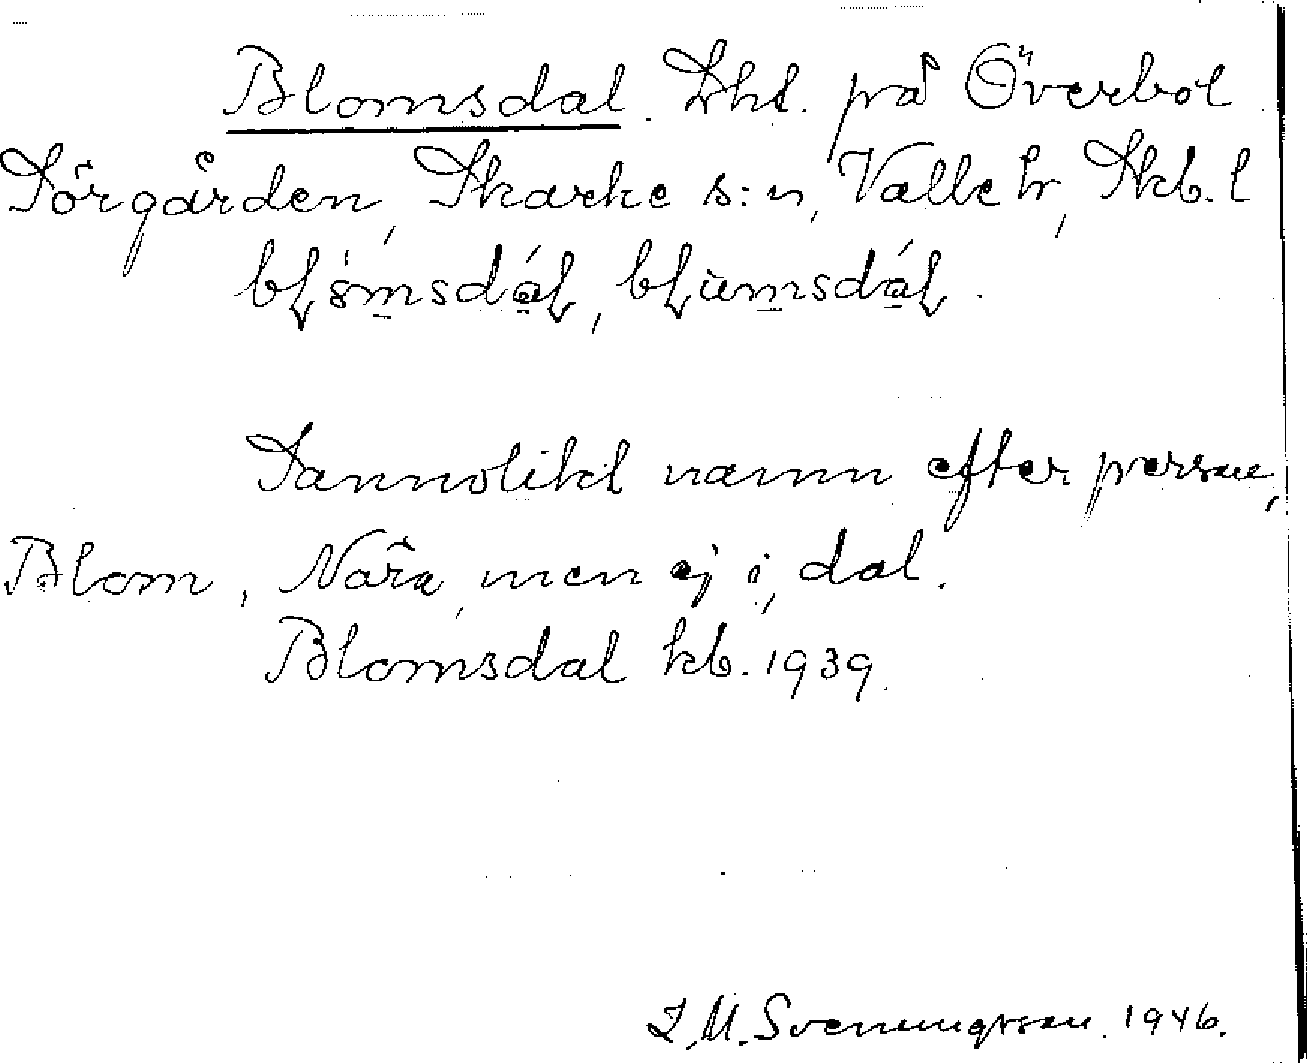 Blomsdal. Lht. på Överbol
Sörgården, Skarke s:n, Valle hr, Skb. l
Sannolikt namn efter person,
Blom, Nära, men ej i, dal.
Blomsdal kb. 1939.
M. Svenungsson. 1946.